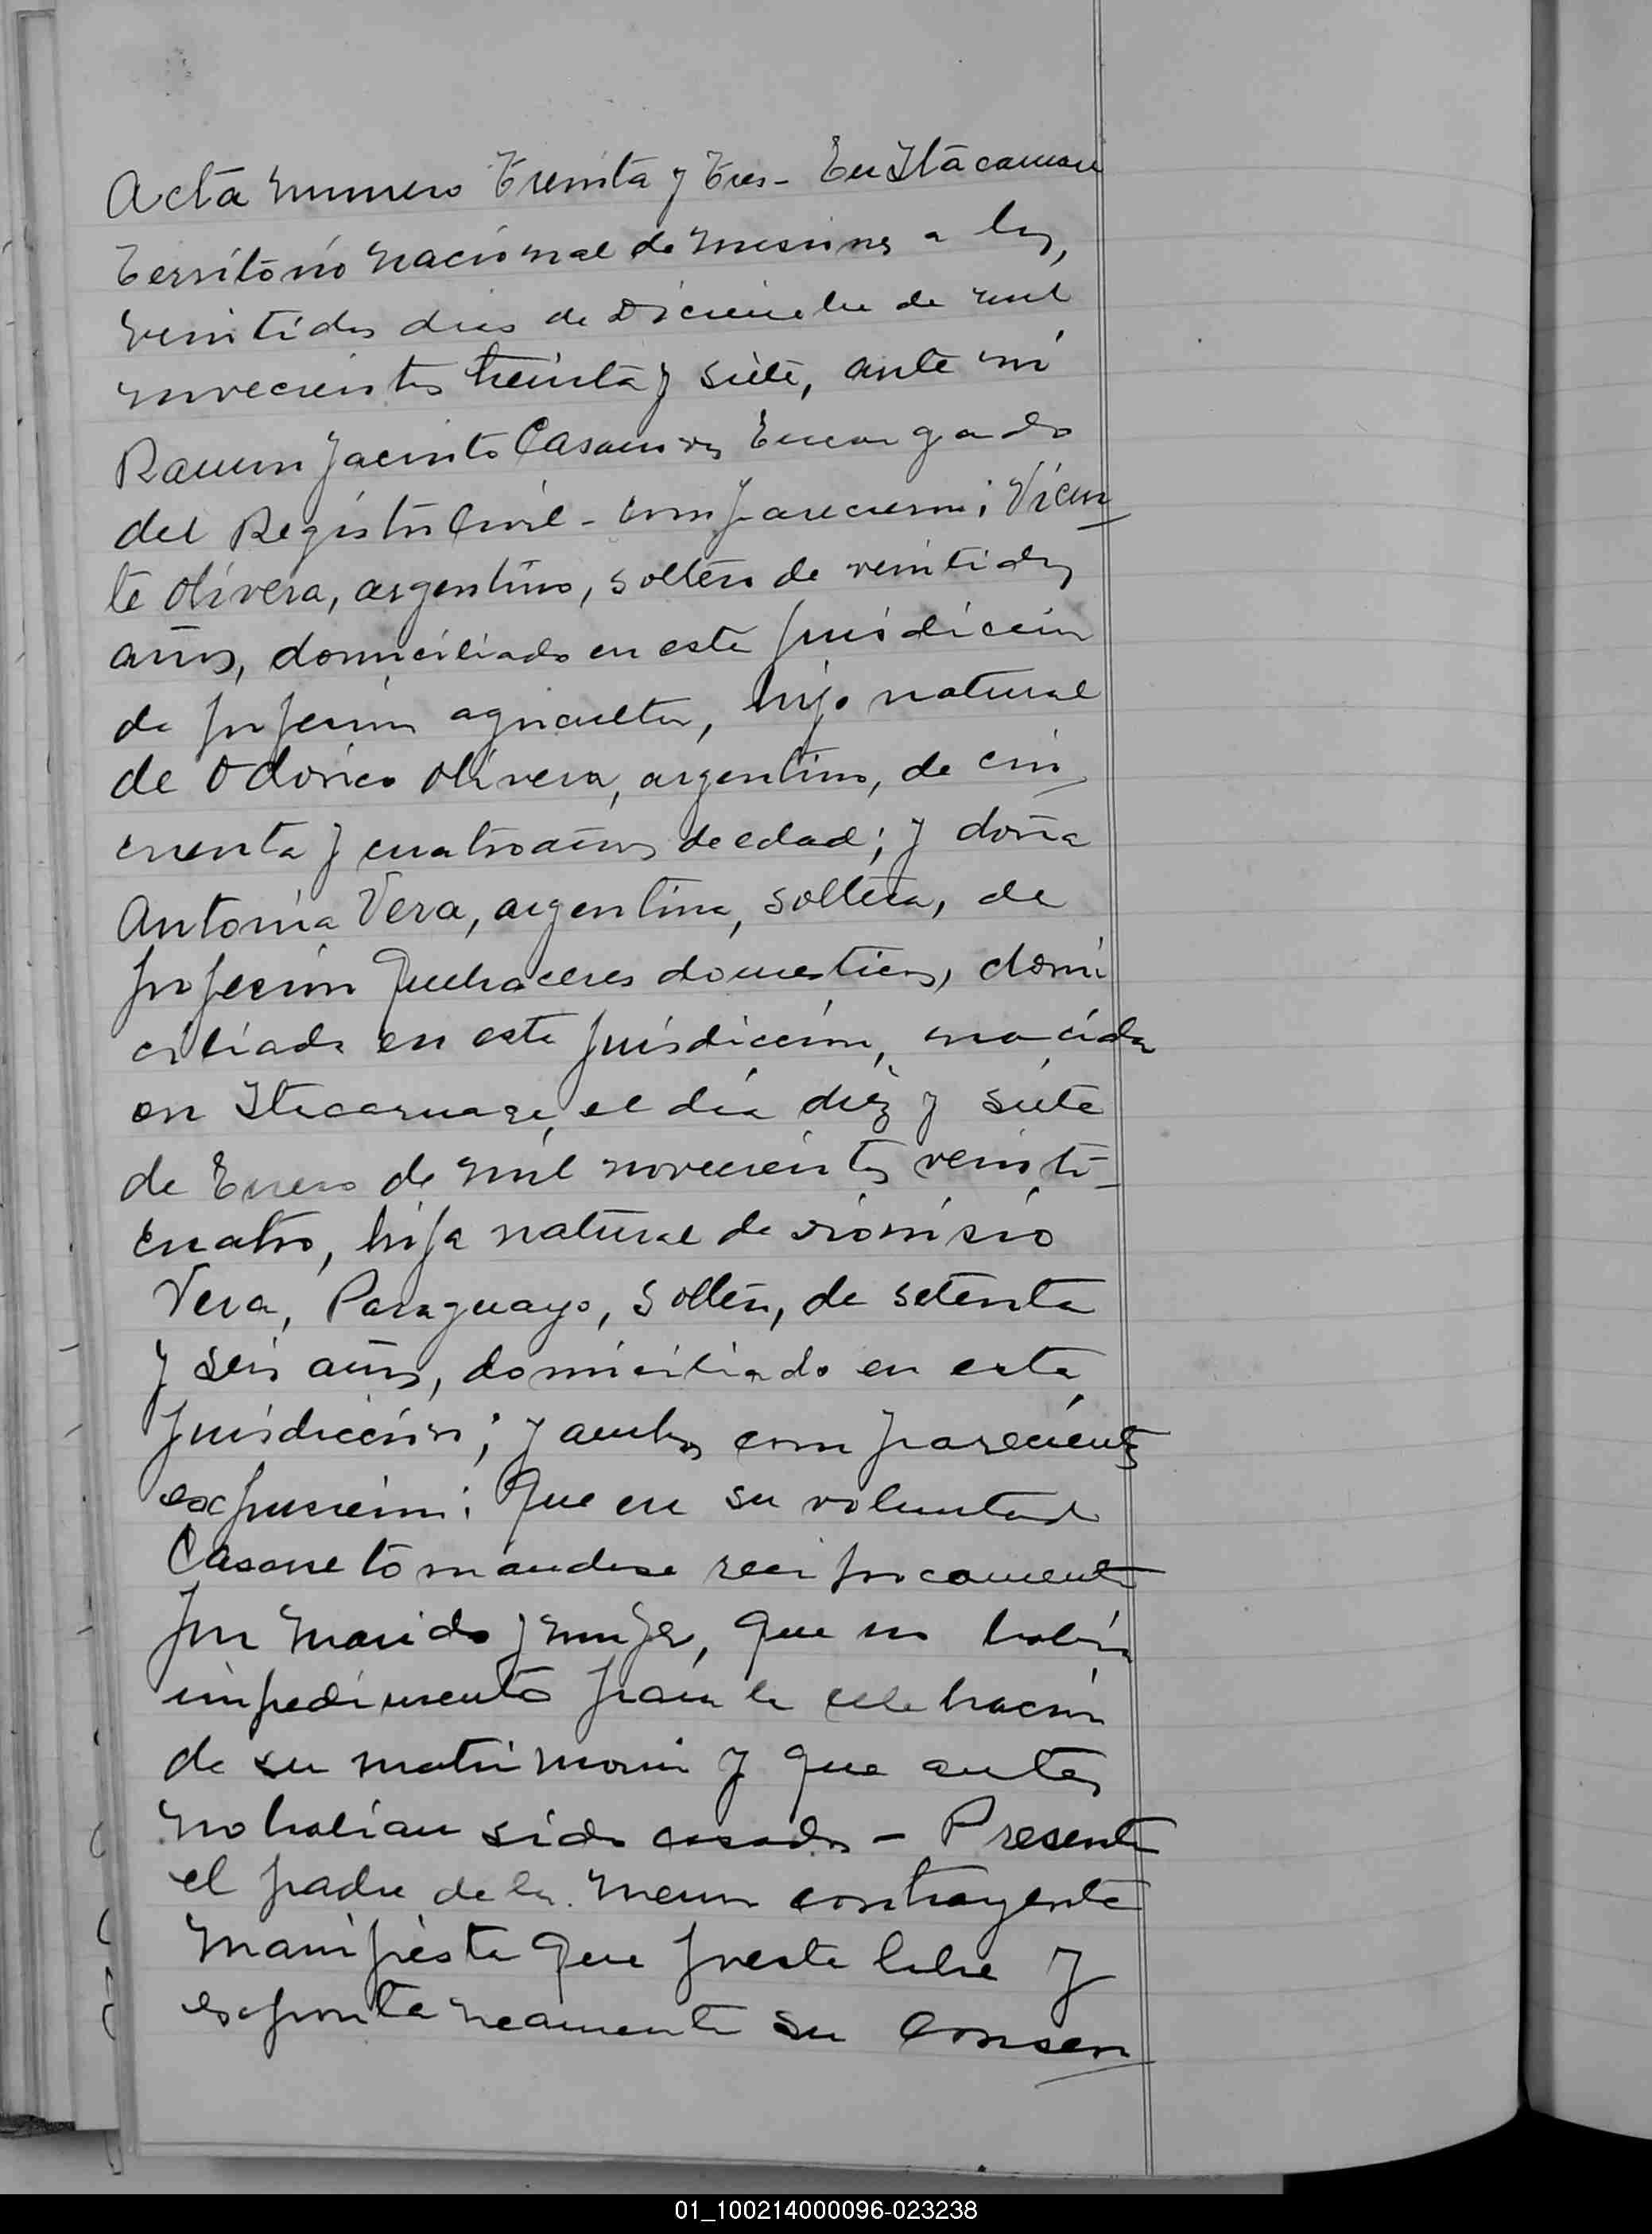 Acta numero Treinta y Tres - En Itacaruare
Territorio Nacional de Misiones a los,
veintidos dias de Diciembre de mil
novecientos treinta y siete, ante mi
Ramon Jacinto Casanova Encargado
del Registro Civil - comparecieron; Vicen
te Olivera, argentino, soltero de veintidos
años, domiciliado en esta jurisdiccion
de profesion agricultor, hijo natural
de Odorico Olivera, argentino, de cin
cuenta y cuatro años de edad; y doña
Antonia Vera, argentina, soltera, de
profesion quehaceres domesticos, domi
ciliada en esta jurisdiccion, nacida
en Itacaruare, el dia diez y siete
de Enero de mil novecientos veinti-
cuatro, hija natural de Dionisio
Vera, Paraguayo, soltero, de setenta
y seis años, domiciliado en esta
jurisdiccion; y ambos comparecientes
expusieron: Que en su voluntad
Casarse tomandose reciprocamente
por marido y mujer, que no habia
impedimento para la celebracion
de su matrimonio y que antes
no habian sido casados - Presente
el padre de la menor contrayente
manifiesta que presta libre y
espontaneamente su consen
01_100214000096-023238